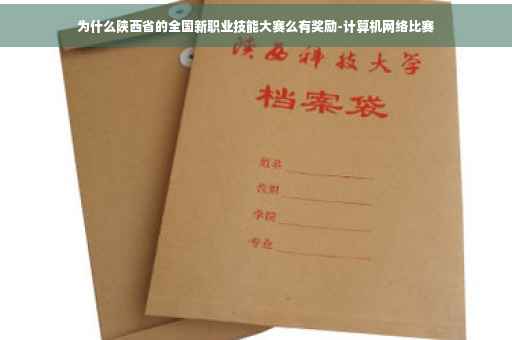 为什么陕西省的全国新职业技能大赛么有奖励-计算机网络比赛
陕西科技大学
档案袋
姓名
性别
学院
专业